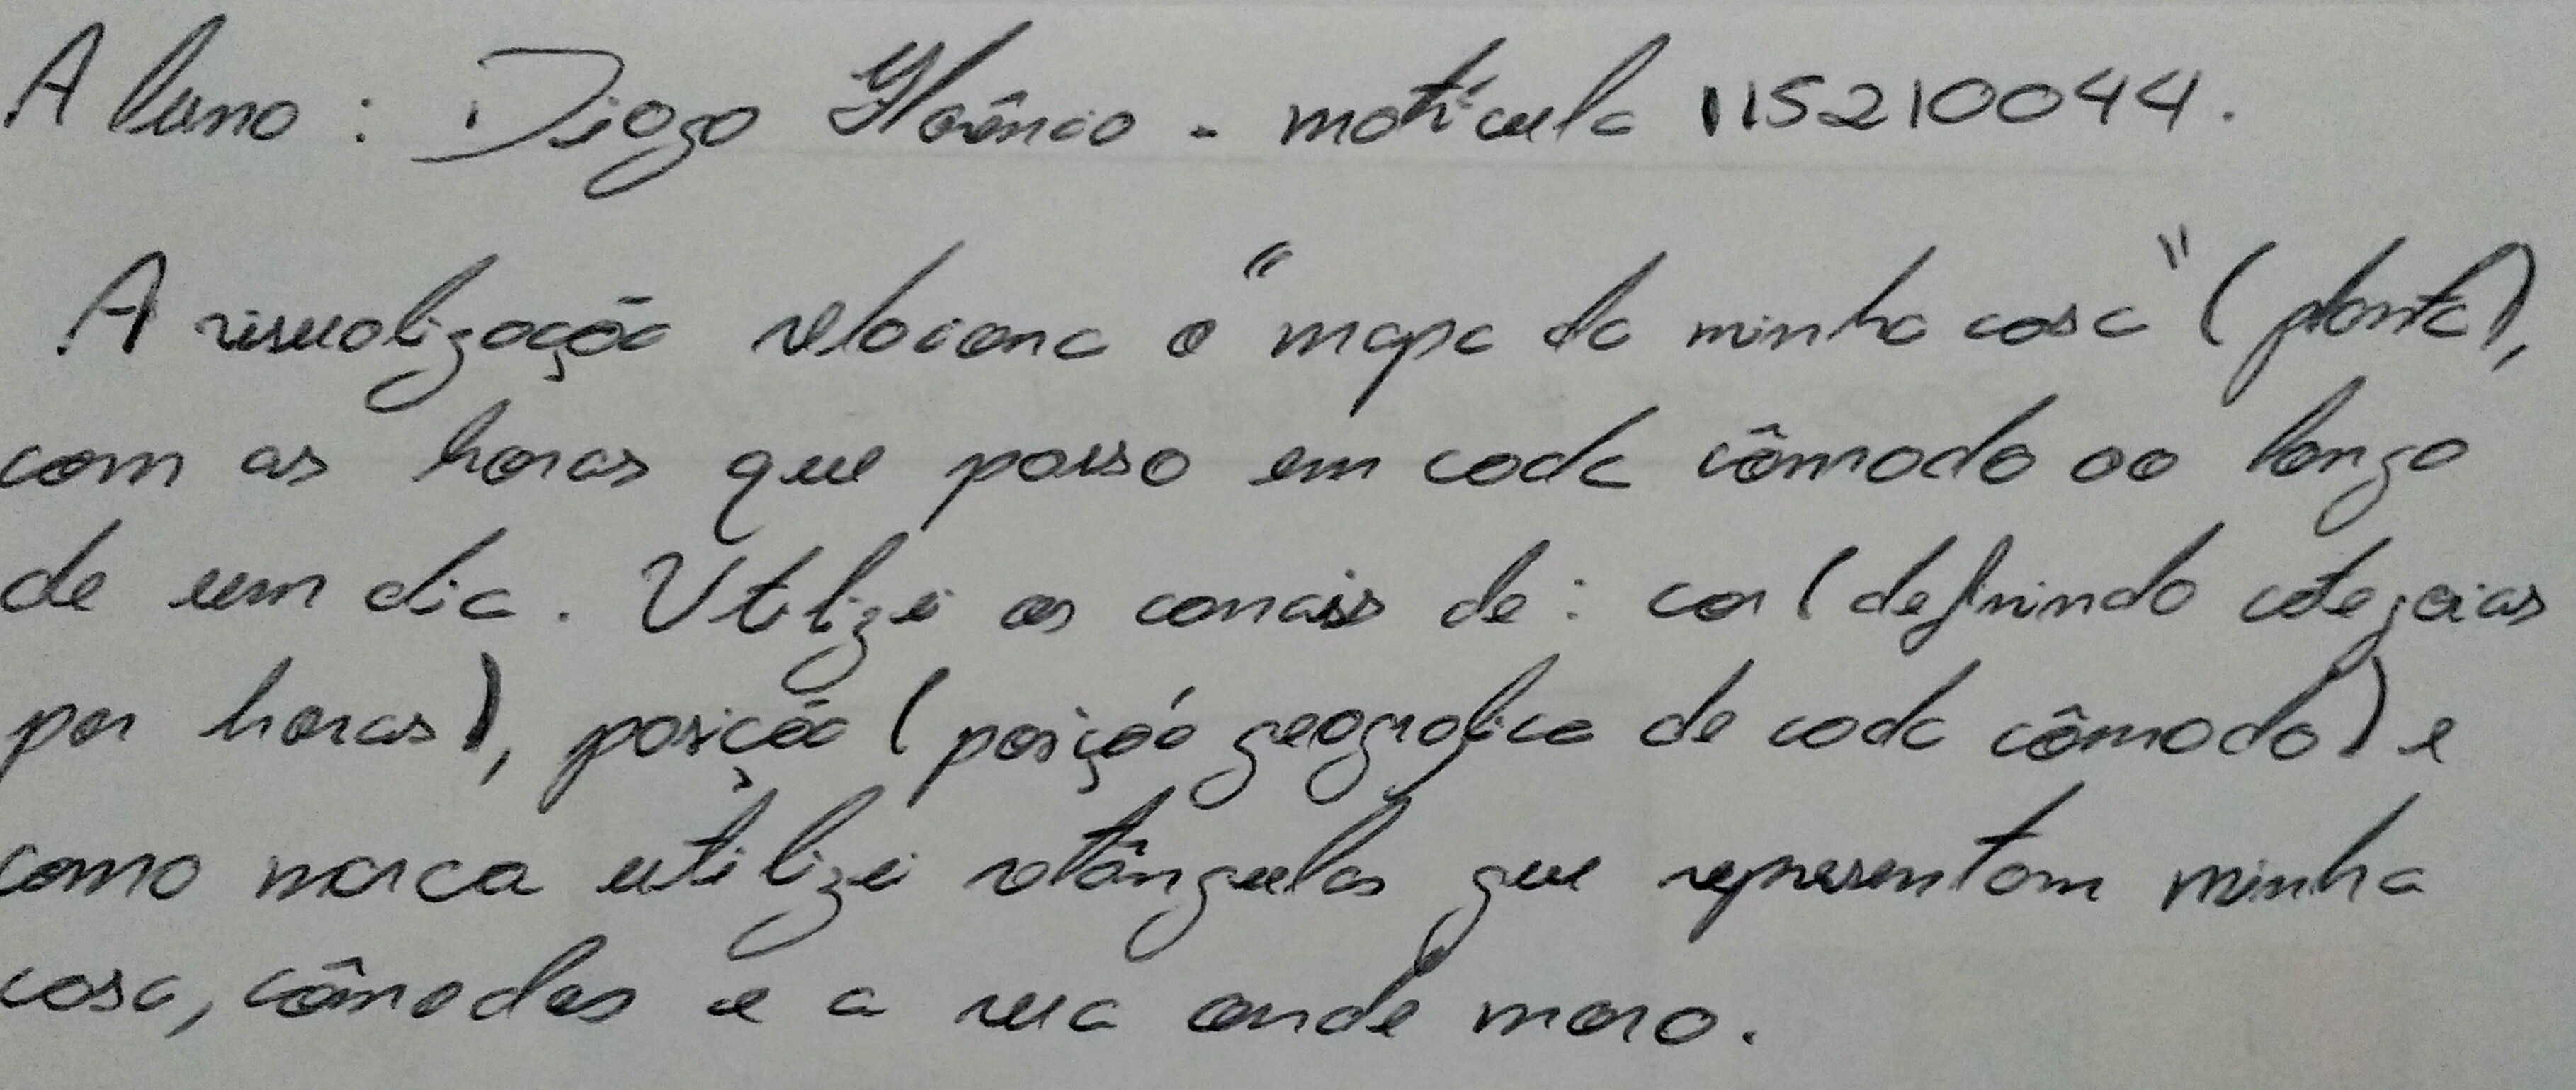 Aluno: Diogo Florêncio - matrícula 115210044.
A visualização relaciona o "mapa da minha casa" (planta),
com as horas que passo em cada cômodo ao longo
de um dia. Utilizei os canais de: cor (definindo categorias
por horas), posição (posição geografica de cada cômodo) e
como marca utilizei retângulos que representam minha
casa, cômodos e a rua onde moro.